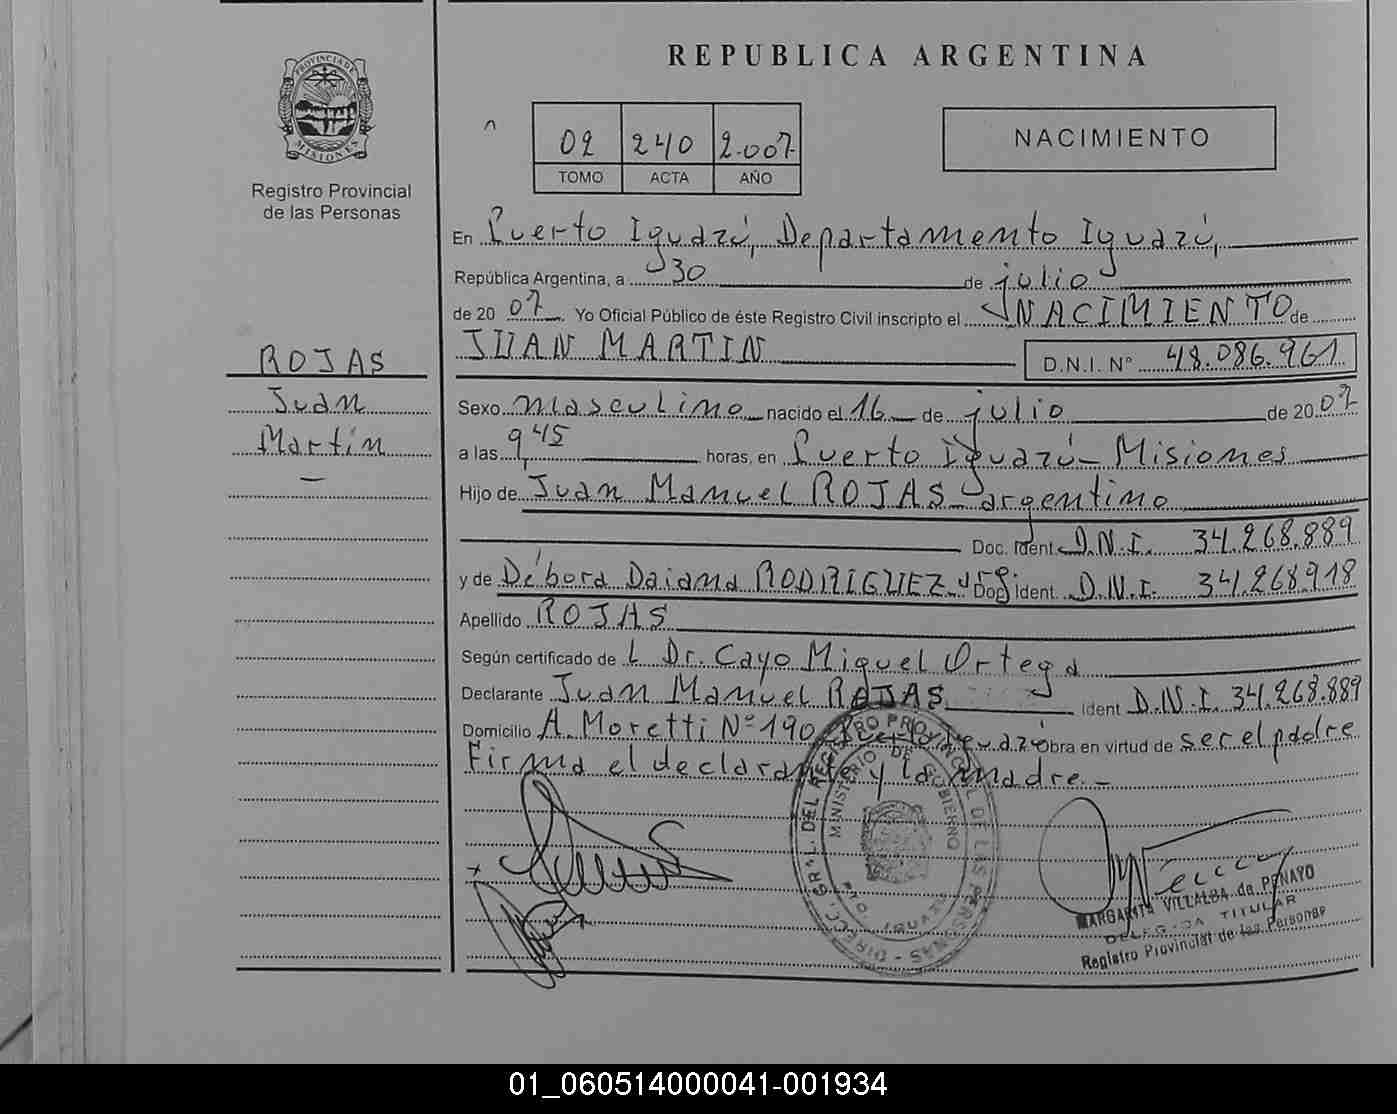 REPUBLICA ARGENTINA
PROVINCIA DE
MISIONES
Registro Provincial
de las Personas
02 240 2.007
TOMO ACTA AÑO
NACIMIENTO
En Puerto Iguazú, Departamento Iguazú,
República Argentina, a 30 de julio
de 20 07 Yo Oficial Público de éste Registro Civil inscripto el NACIMIENTO de
JUAN MARTIN D.N.I. Nº 48.086.961
ROJAS
Juan
Martín
Sexo masculino nacido el 16 de julio de 20 07
a las 9,45 horas, en Puerto Iguazú - Misiones
Hijo de Juan Manuel ROJAS - argentino
Doc. Ident. D.N.I. 34.268.889
y de Débora Daiana RODRIGUEZ Doc. Ident. D.N.I. 34.268.918
Apellido ROJAS
Según certificado de L Dr. Cayo Miguel Ortega
Declarante Juan Manuel ROJAS Ident D.N.I. 34.268.889
Domicilio A. Moretti Nº 190 Puerto Iguazú Obra en virtud de ser el padre
Firma el declarante y la madre. -
DIREC. GRAL. DEL REGISTRO PROVINCIAL DE LAS PERSONAS
MINISTERIO DE GOBIERNO
MARGARITA VILLALBA de PENAYO
DELEGADA TITULAR
Registro Provincial de las Personas
01_060514000041-001934